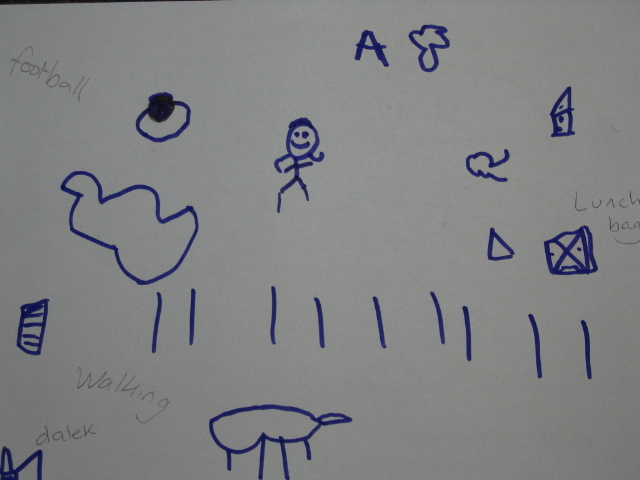 A
football
Lunch
bag
Walking
dalek